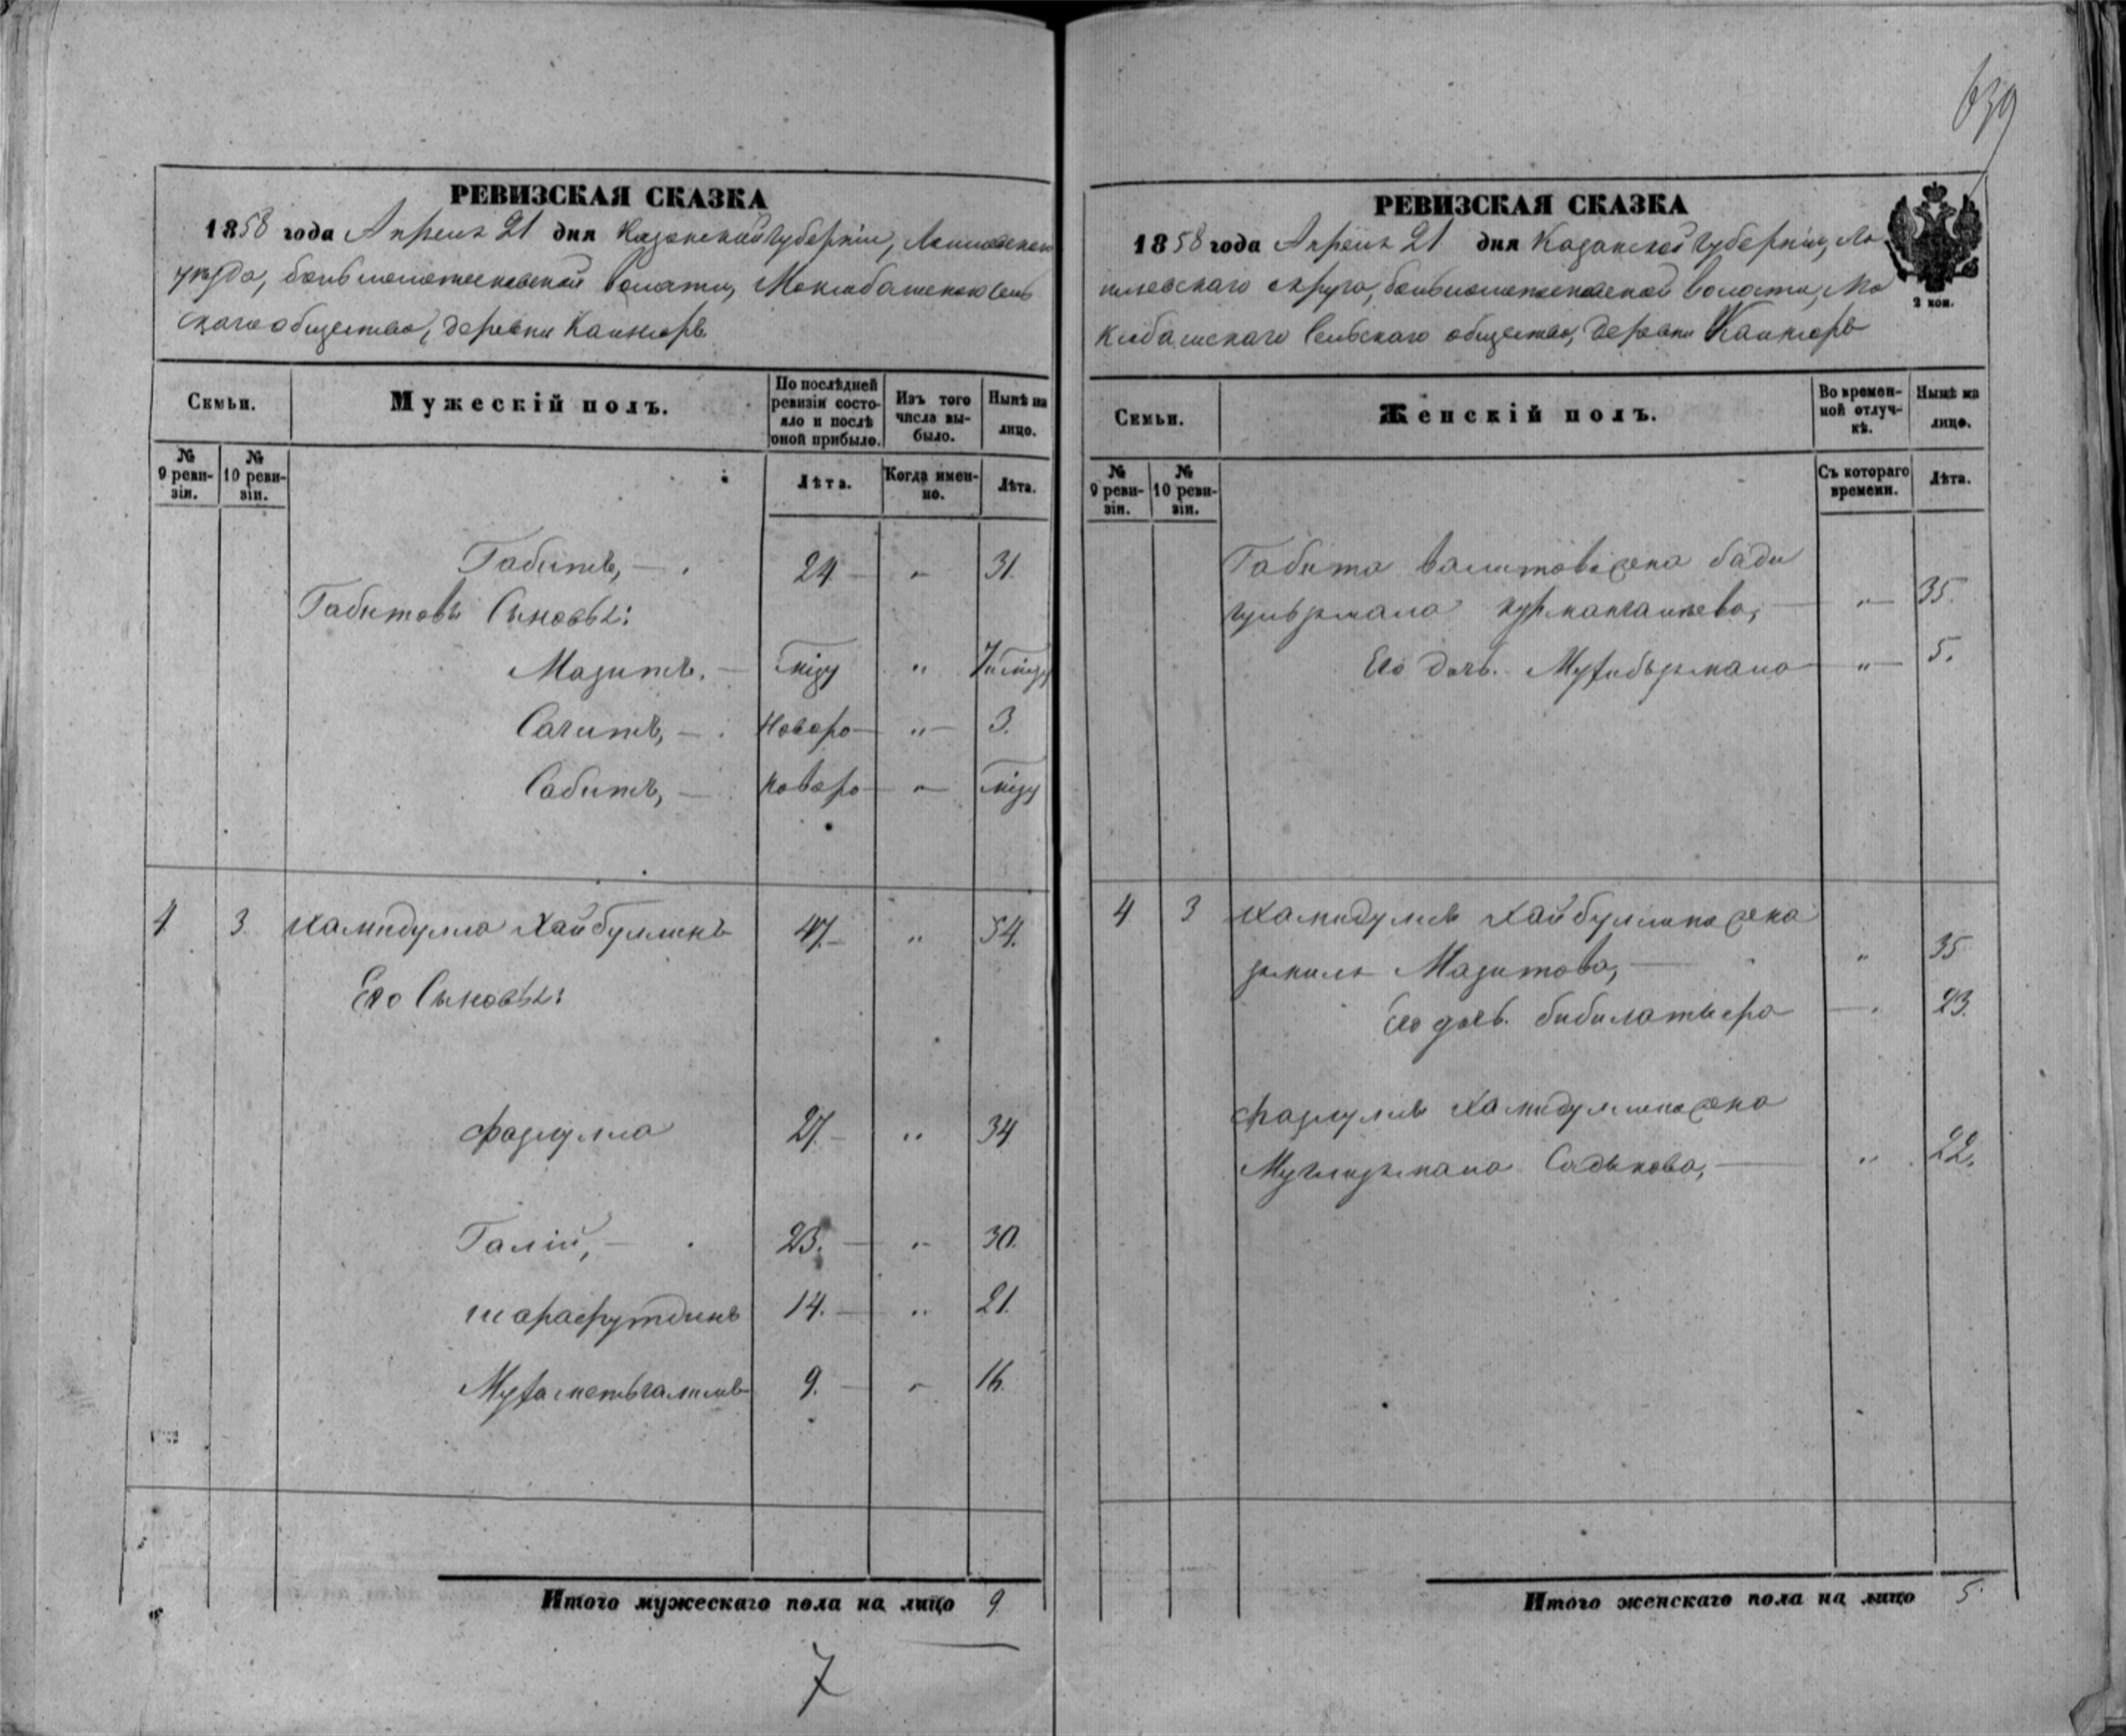 639
РЕВИЗСКАЯ СКАЗКА
1858 года Апреля 21 дня Казанской губерніи, Лаишевскаго
уѣзда, волости, Моклюбашскаго Сель
скаго общества, деревни Каинюръ
Семьи.
Мужескій полъ.
По послѣдней ревизіи состояло и послѣ оной прибыло.
Изъ того числа выбыло.
Нынѣ на лицо.
№ 9 ревизіи.
№ 10 ревизіи.
Лѣта.
Когда именно.
Лѣта.
Габитъ, — 24 — " 31.
Габитовы Сыновья:
Мазитъ. — "
Сагитъ, — Новоро — " — 3.
Сабитъ, — Новоро — " —
4 3. Хамидулла Хайбуллинъ 47. — " 54.
Его Сыновья:
Фазлулла 27. — " 34
Галій, — 23. — " 30.
Шарафутдинъ 14. — " 21.
9. — " 16.
Итого мужескаго пола на лицо 9
7
РЕВИЗСКАЯ СКАЗКА
1858 года Апреля 21 дня Казанской губерніи, Ла
ишевскаго округа, волости, Мо
клюбашскаго Сельскаго общества, деревни Каинюръ
2 коп.
Семьи.
Женскій полъ.
Во временной отлучкѣ.
Нынѣ на лицо.
№ 9 ревизіи.
№ 10 ревизіи.
Съ котораго времени.
Лѣта.
Габита Валитова жена Бади
— " — 35.
Его дочь. — " — 5.
4 3 Хамидуллы Хайбуллина жена
Мазитова, — " 35
Его дочь. — " 23.
Фазлуллы Хамидуллина жена
Садыкова, — " 22.
Итого женскаго пола на лицо 5